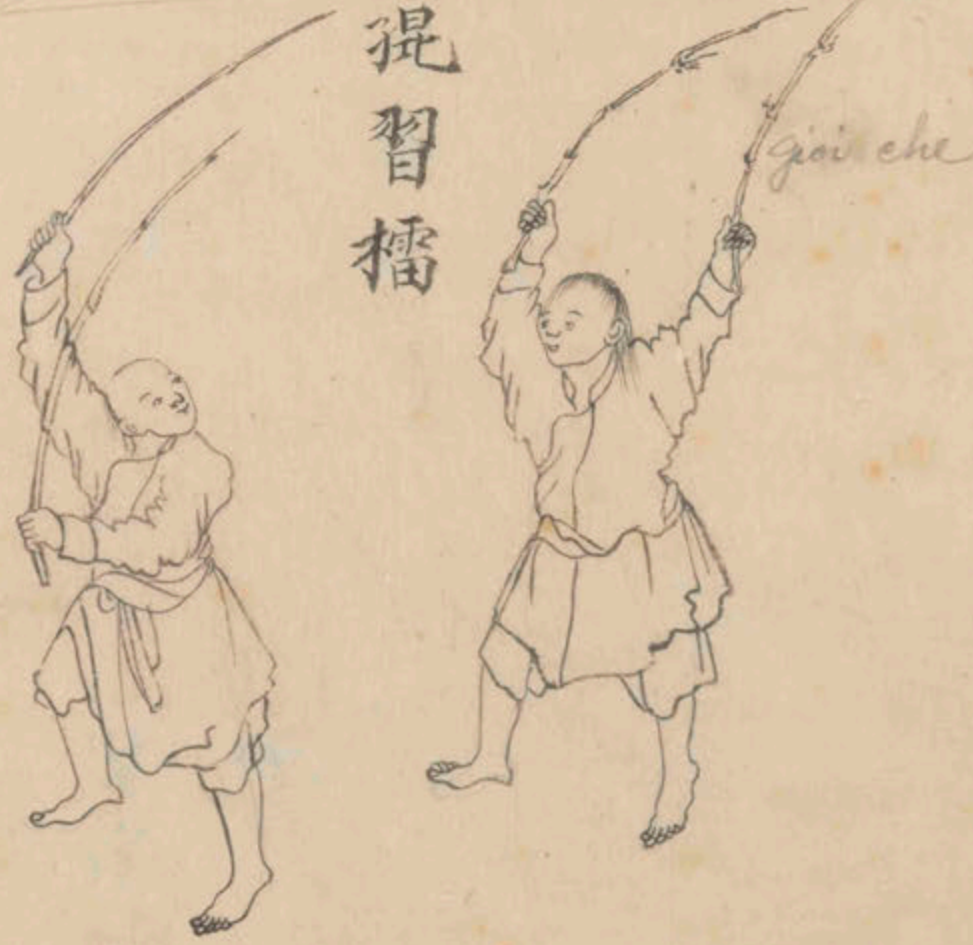 𡥵
習
擂
gioi che